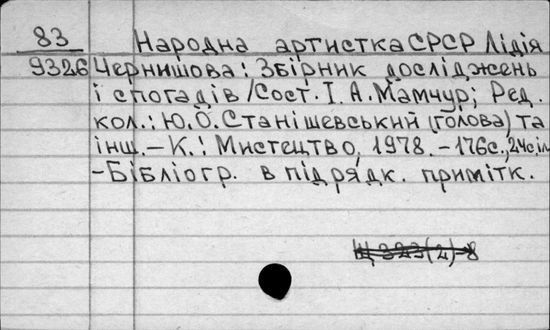 83 Народна артистка СРСР Лідія
9326 Чернишова: Збірник досліджень
і спогадів / Сост. І. А. Мамчур; Ред.
кол.: Ю. О. Станішевський (голова) та
інш. – К.: Мистецтво, 1978. – 176с., 24с, іл
– Бібліогр. в підрядк. примітк.
Щ 323(2)-8